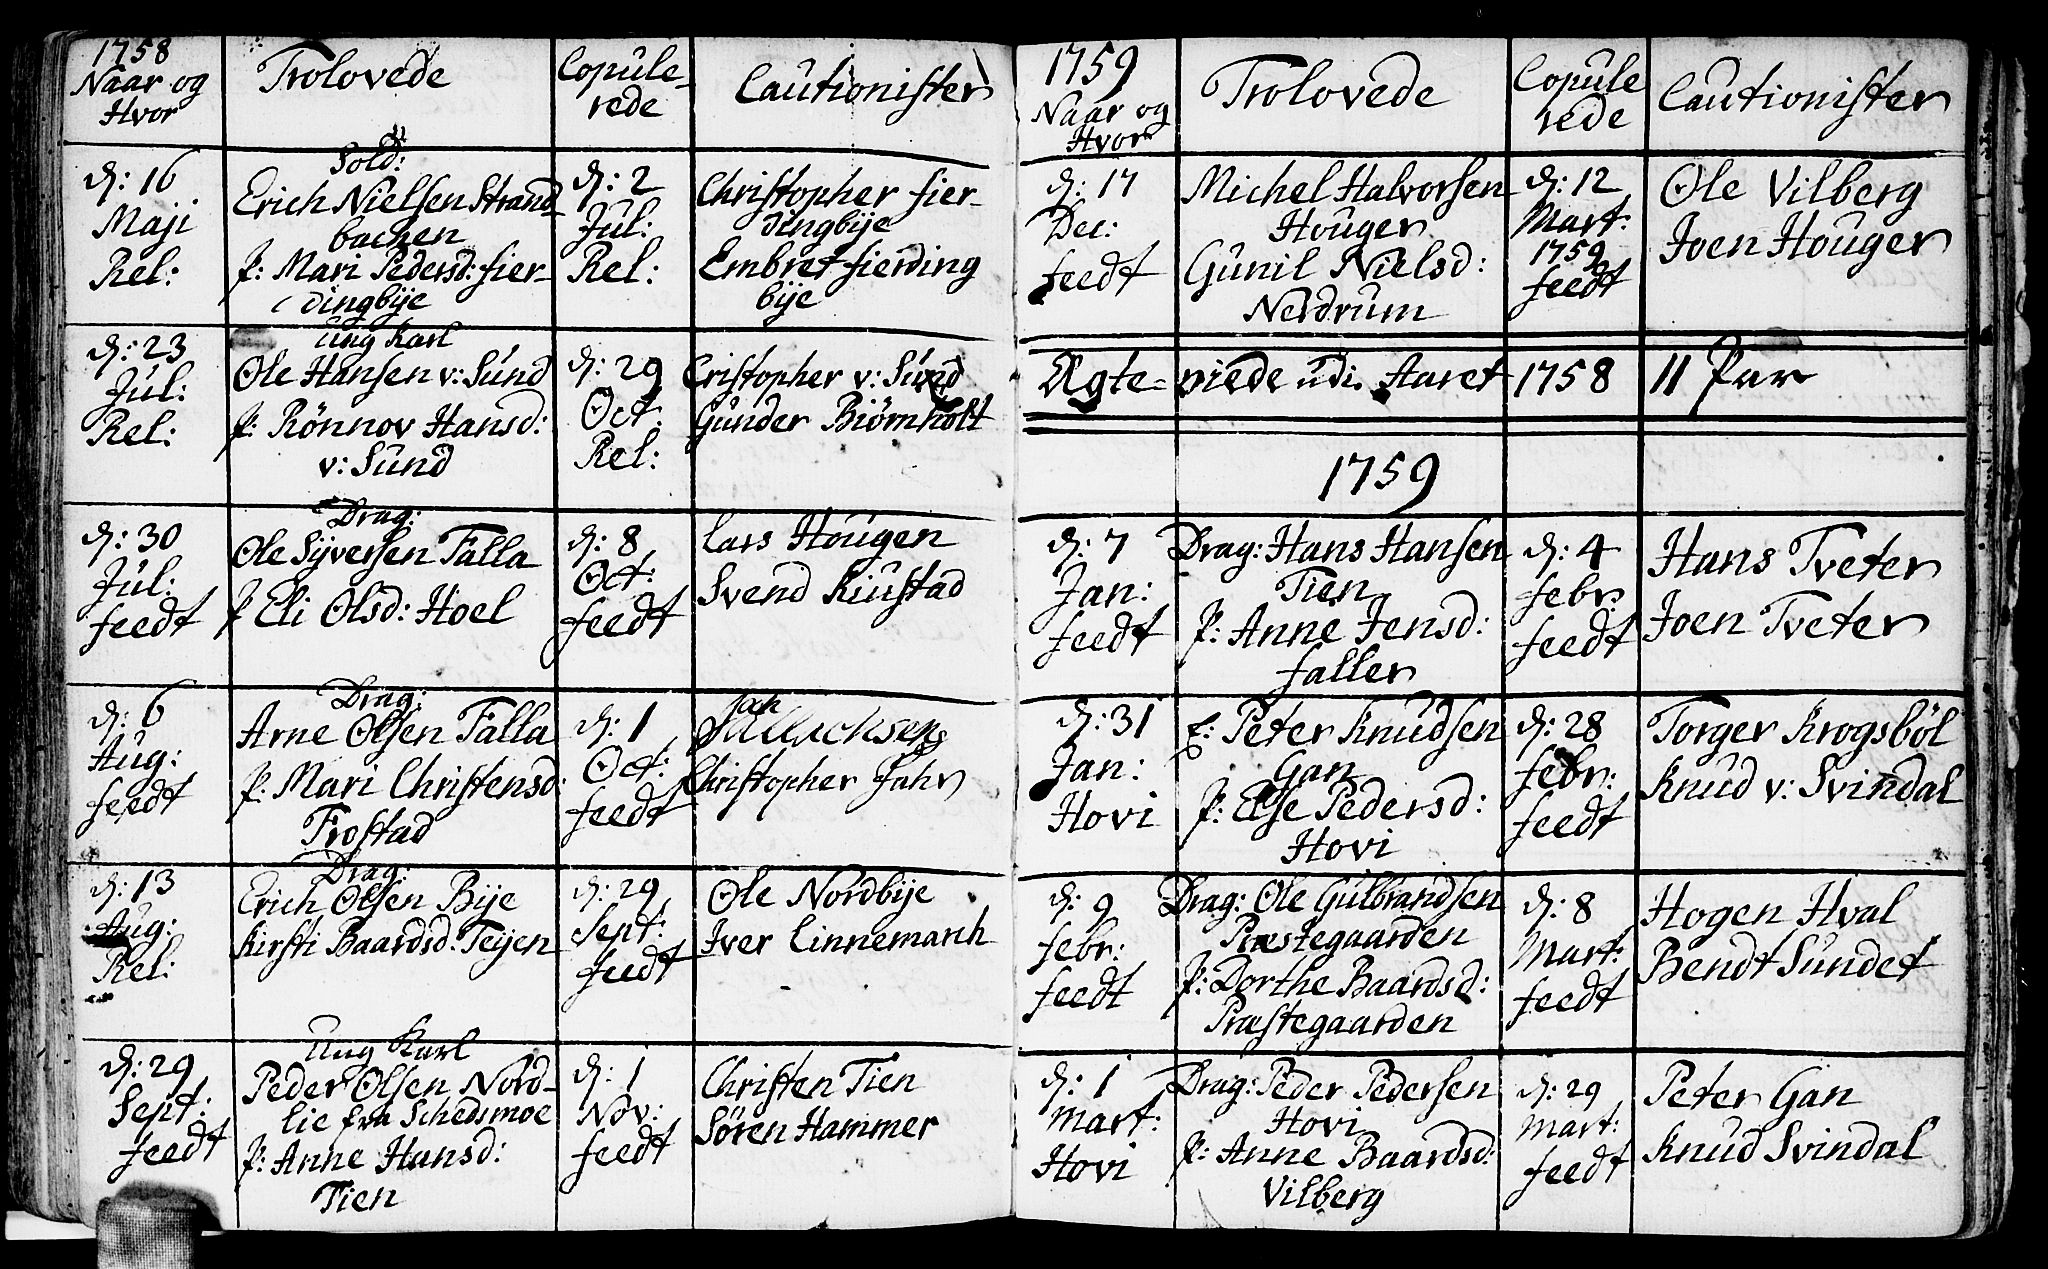 1758
Naar og
Hvor
Trolovede
Copule-
rede
Cautionister
d: 16
Maji
Rel:
Sold:
Erich Nielsen Strand
bachen
P: Mari Pedersd: fier-
dingbije
d: 2
Jul:
Rel:
Christopher fier-
dingbije
Embret fierding
bije
d: 23
Jul:
Rel:
Ung Karl
Ole Hansen v: Sund
P: Rönnov Hansd:
v: Sund
d: 29
Oct:
Rel:
Cristopher v: Sund
Gunder Biörnholt
d: 30
Jul:
feedt
Drag:
Ole Syversen Falla
P Eli Olsd: Hoel
d: 8
Oct:
feedt
Lars Hougen
Svend Kiustad
d: 6
Aug:
feedt
Drag:
Arne Olsen Falla
P: Mari Christensd:
Frostad
d: 1
Oct:
feedt
Christopher Jahr
d: 13
Aug:
Rel:
Drag:
Erich Olsen Bije
Kirsti Baardsd: Teijen
d: 29
Sept:
feedt
Ole Nordbije
Iver Linnemarch
d: 29
Sept:
feedt
Ung Karl
Peder Olsen Nord-
lie fra Schedsmoe
P: Anne Hansd:
Tien
d: 1
Nov:
feedt
Christen Tien
Sören Hammer
1759
Naar og
Hvor
Trolovede
Copule
rede
Cautionister
d: 17
Dec:
feedt
Michel Halvorsen
Houger
Gunil Nielsd:
Nerdrum
d: 12
Mart:
1759
feedt
Ole Vilberg
Joen Houger
Ægte- viede udi Aaret 1758 11 Par
1759
d: 7
Jan:
feedt
Drag: Hans Hansen
Tien
P: Anne Jensd:
faller
d: 4
febr:
feedt
Hans Tveter
Joen Tveter
d: 31
Jan:
Hovi
E: Peter Knudsen
Gan
P: Else Pedersd:
Hovi
d: 28
febr:
feedt
Torger Krogsböl
Knud v: Svindal
d: 9
febr:
feedt
Drag: Ole Gulbrandsen
Præstegaarden
P: Dorthe Baardsd:
Præstegaarden
d: 8
Mart:
feedt
Hogen Hval
Bendt Sundet
d: 1
Mart:
Hovi
Drag: Peder Pedersen
Hovi
P: Anne Baardsd:
Vilberg
d: 29
Mart:
feedt
Peter Gan
Knud Svindal